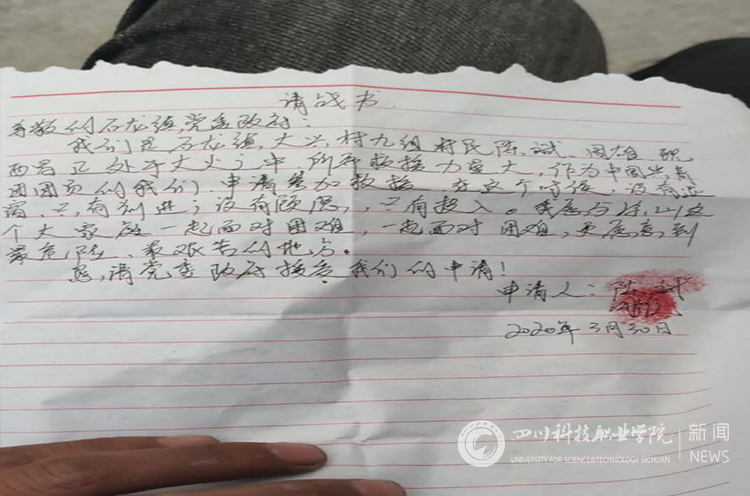 请战书
尊敬的石龙镇党委政府:
我们是石龙镇大兴村九组村民陈试、周雄,现
西昌正处于大火之中,所需救援力量大,作为中国共青
团团员的我们,申请参加救援,在这个时候,没有逆
只有前进;没有顾虑,只有投入。我愿与
个大家庭一起面对困难,一起面对困难,更愿意到
最危险、最艰苦的地方。
恳请党委政府接受我们的申请!
申请人:陈试
2020年3月30日
四川科技职业学院 新闻
UNIVERSITY FOR SCIENCE&TECHNOLOGY SICHUAN NEWS